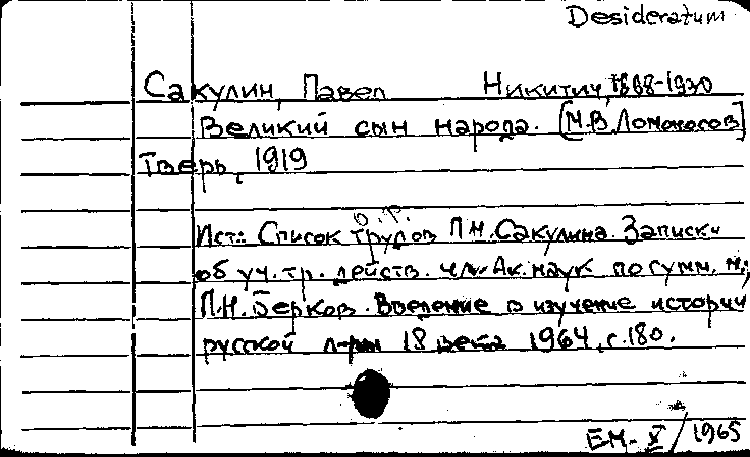 Desideratum
Сакулин, Павел Никитич, 1868-1930
Великий сын народа. [М.В. Ломоносов]
Тверь, 1919
О.Р.
Ист.: Список трудов П.Н. Сакулина. Записки
об уч. тр. действ. член. Ак. наук по гумм. н.;
П.Н. Берков. Введение в изучение истории
русской л-ры 18 века 1964, с. 180.
ЕМ- X/1965